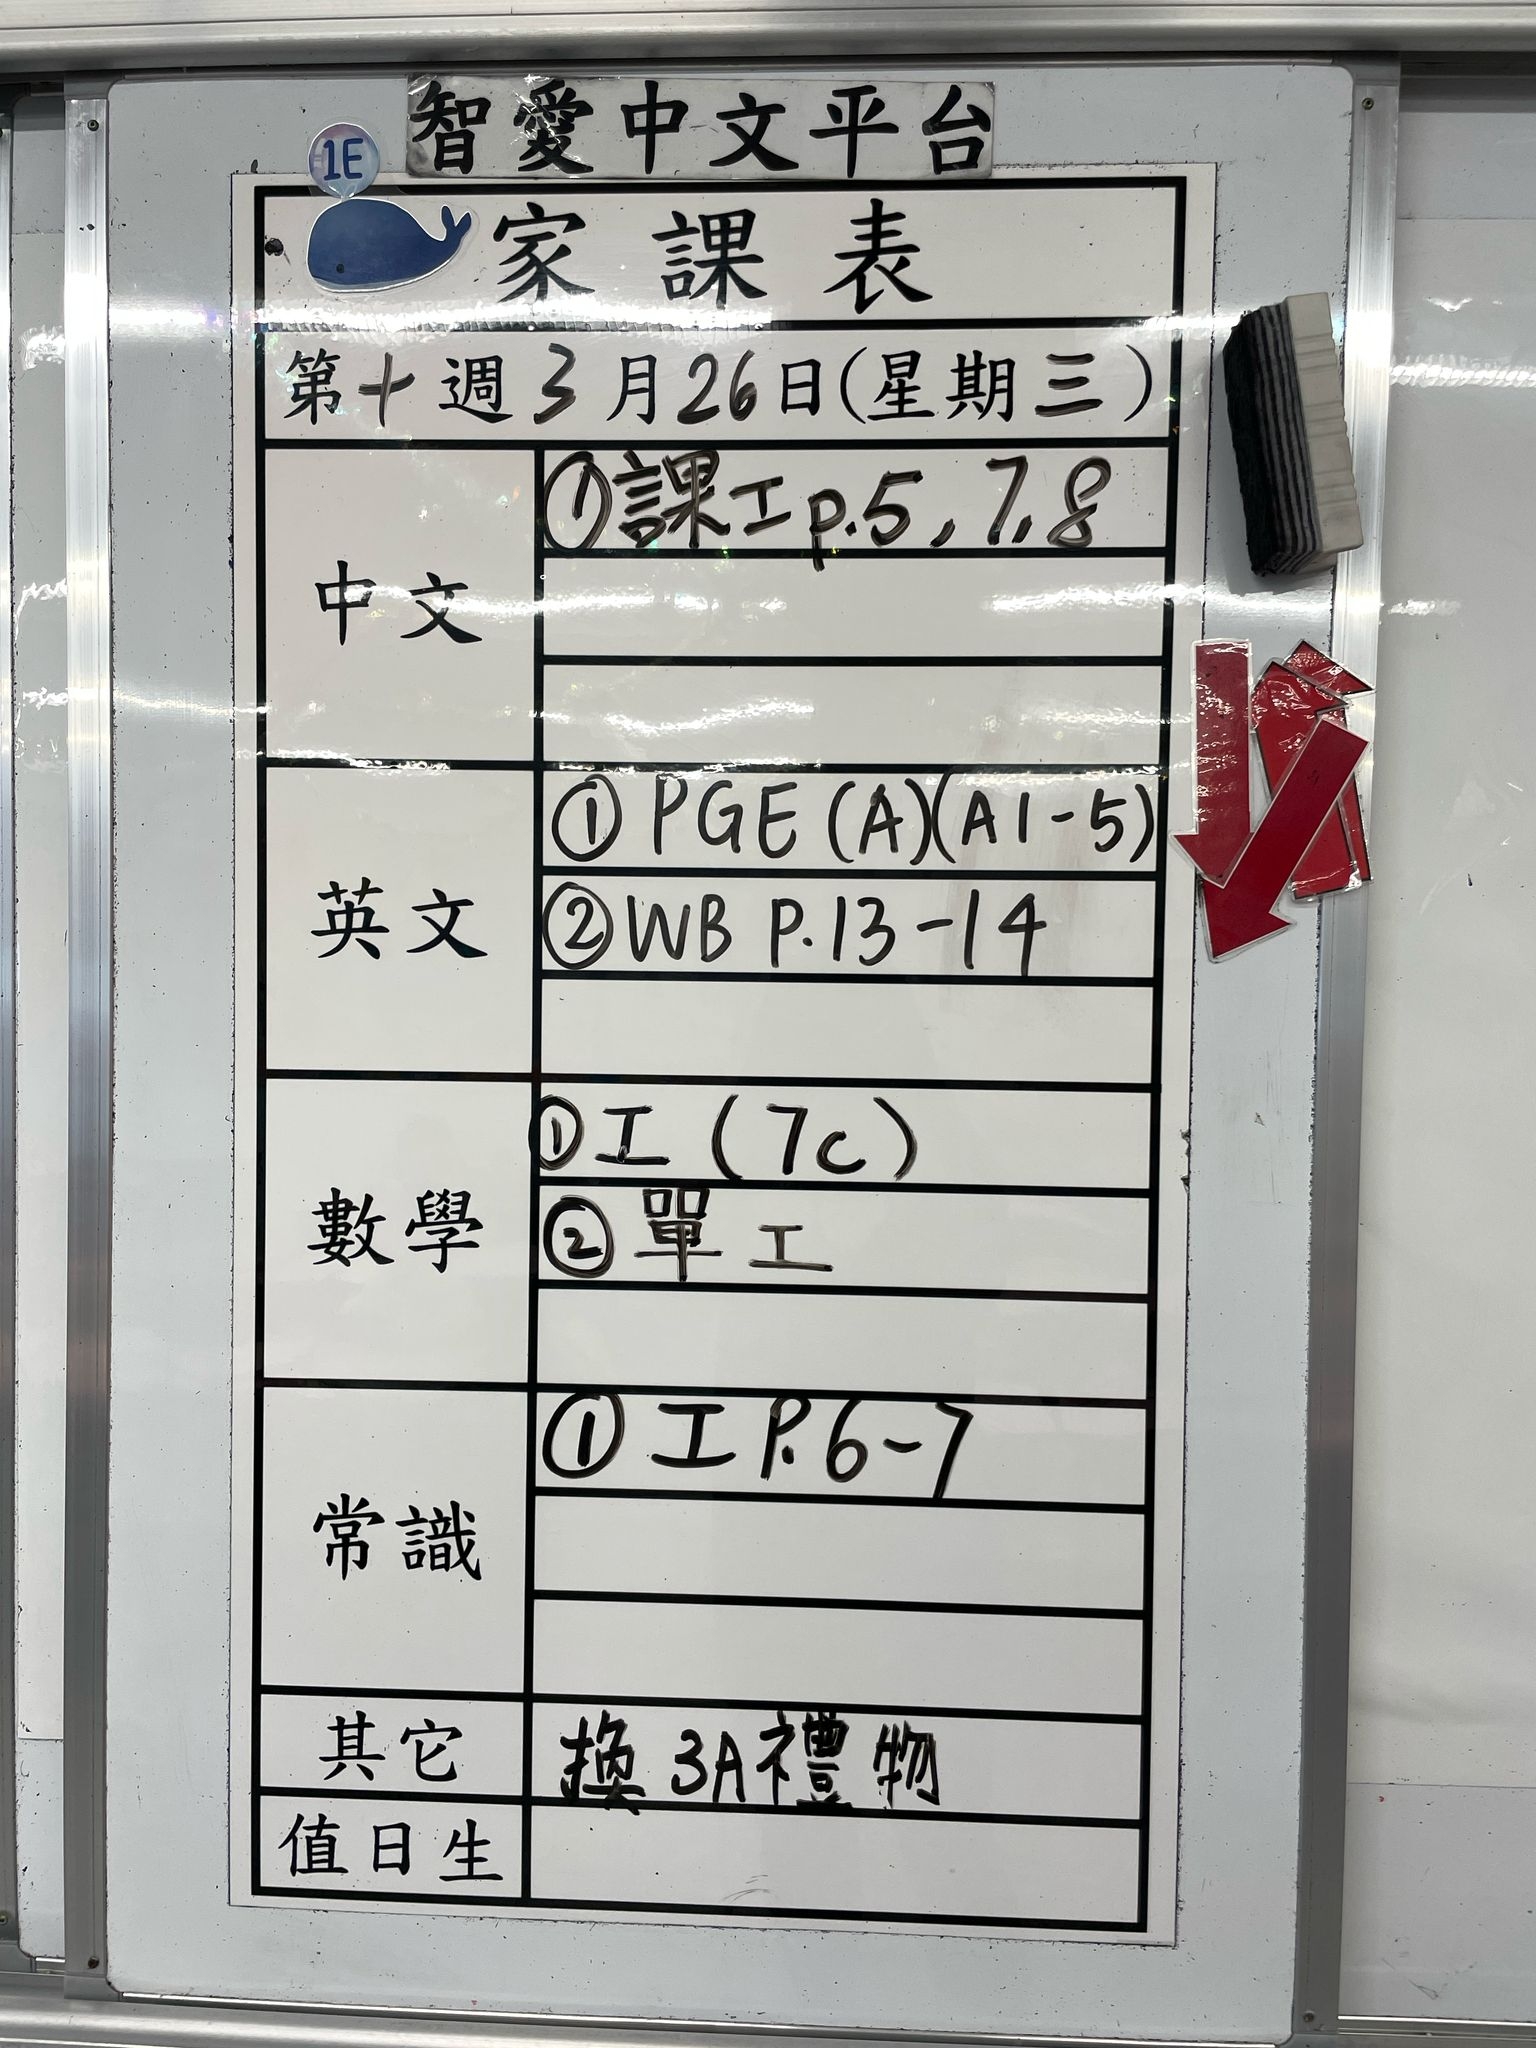 智愛中文平台
1E
家課表
第十週3月26日(星期三)
中文
①課工p.5,7,8
英文
①PGE(A)(A1-5)
②WB P.13-14
數學
①工(7C)
②單工
常識
①工P.6-7
其它
換3A禮物
值日生